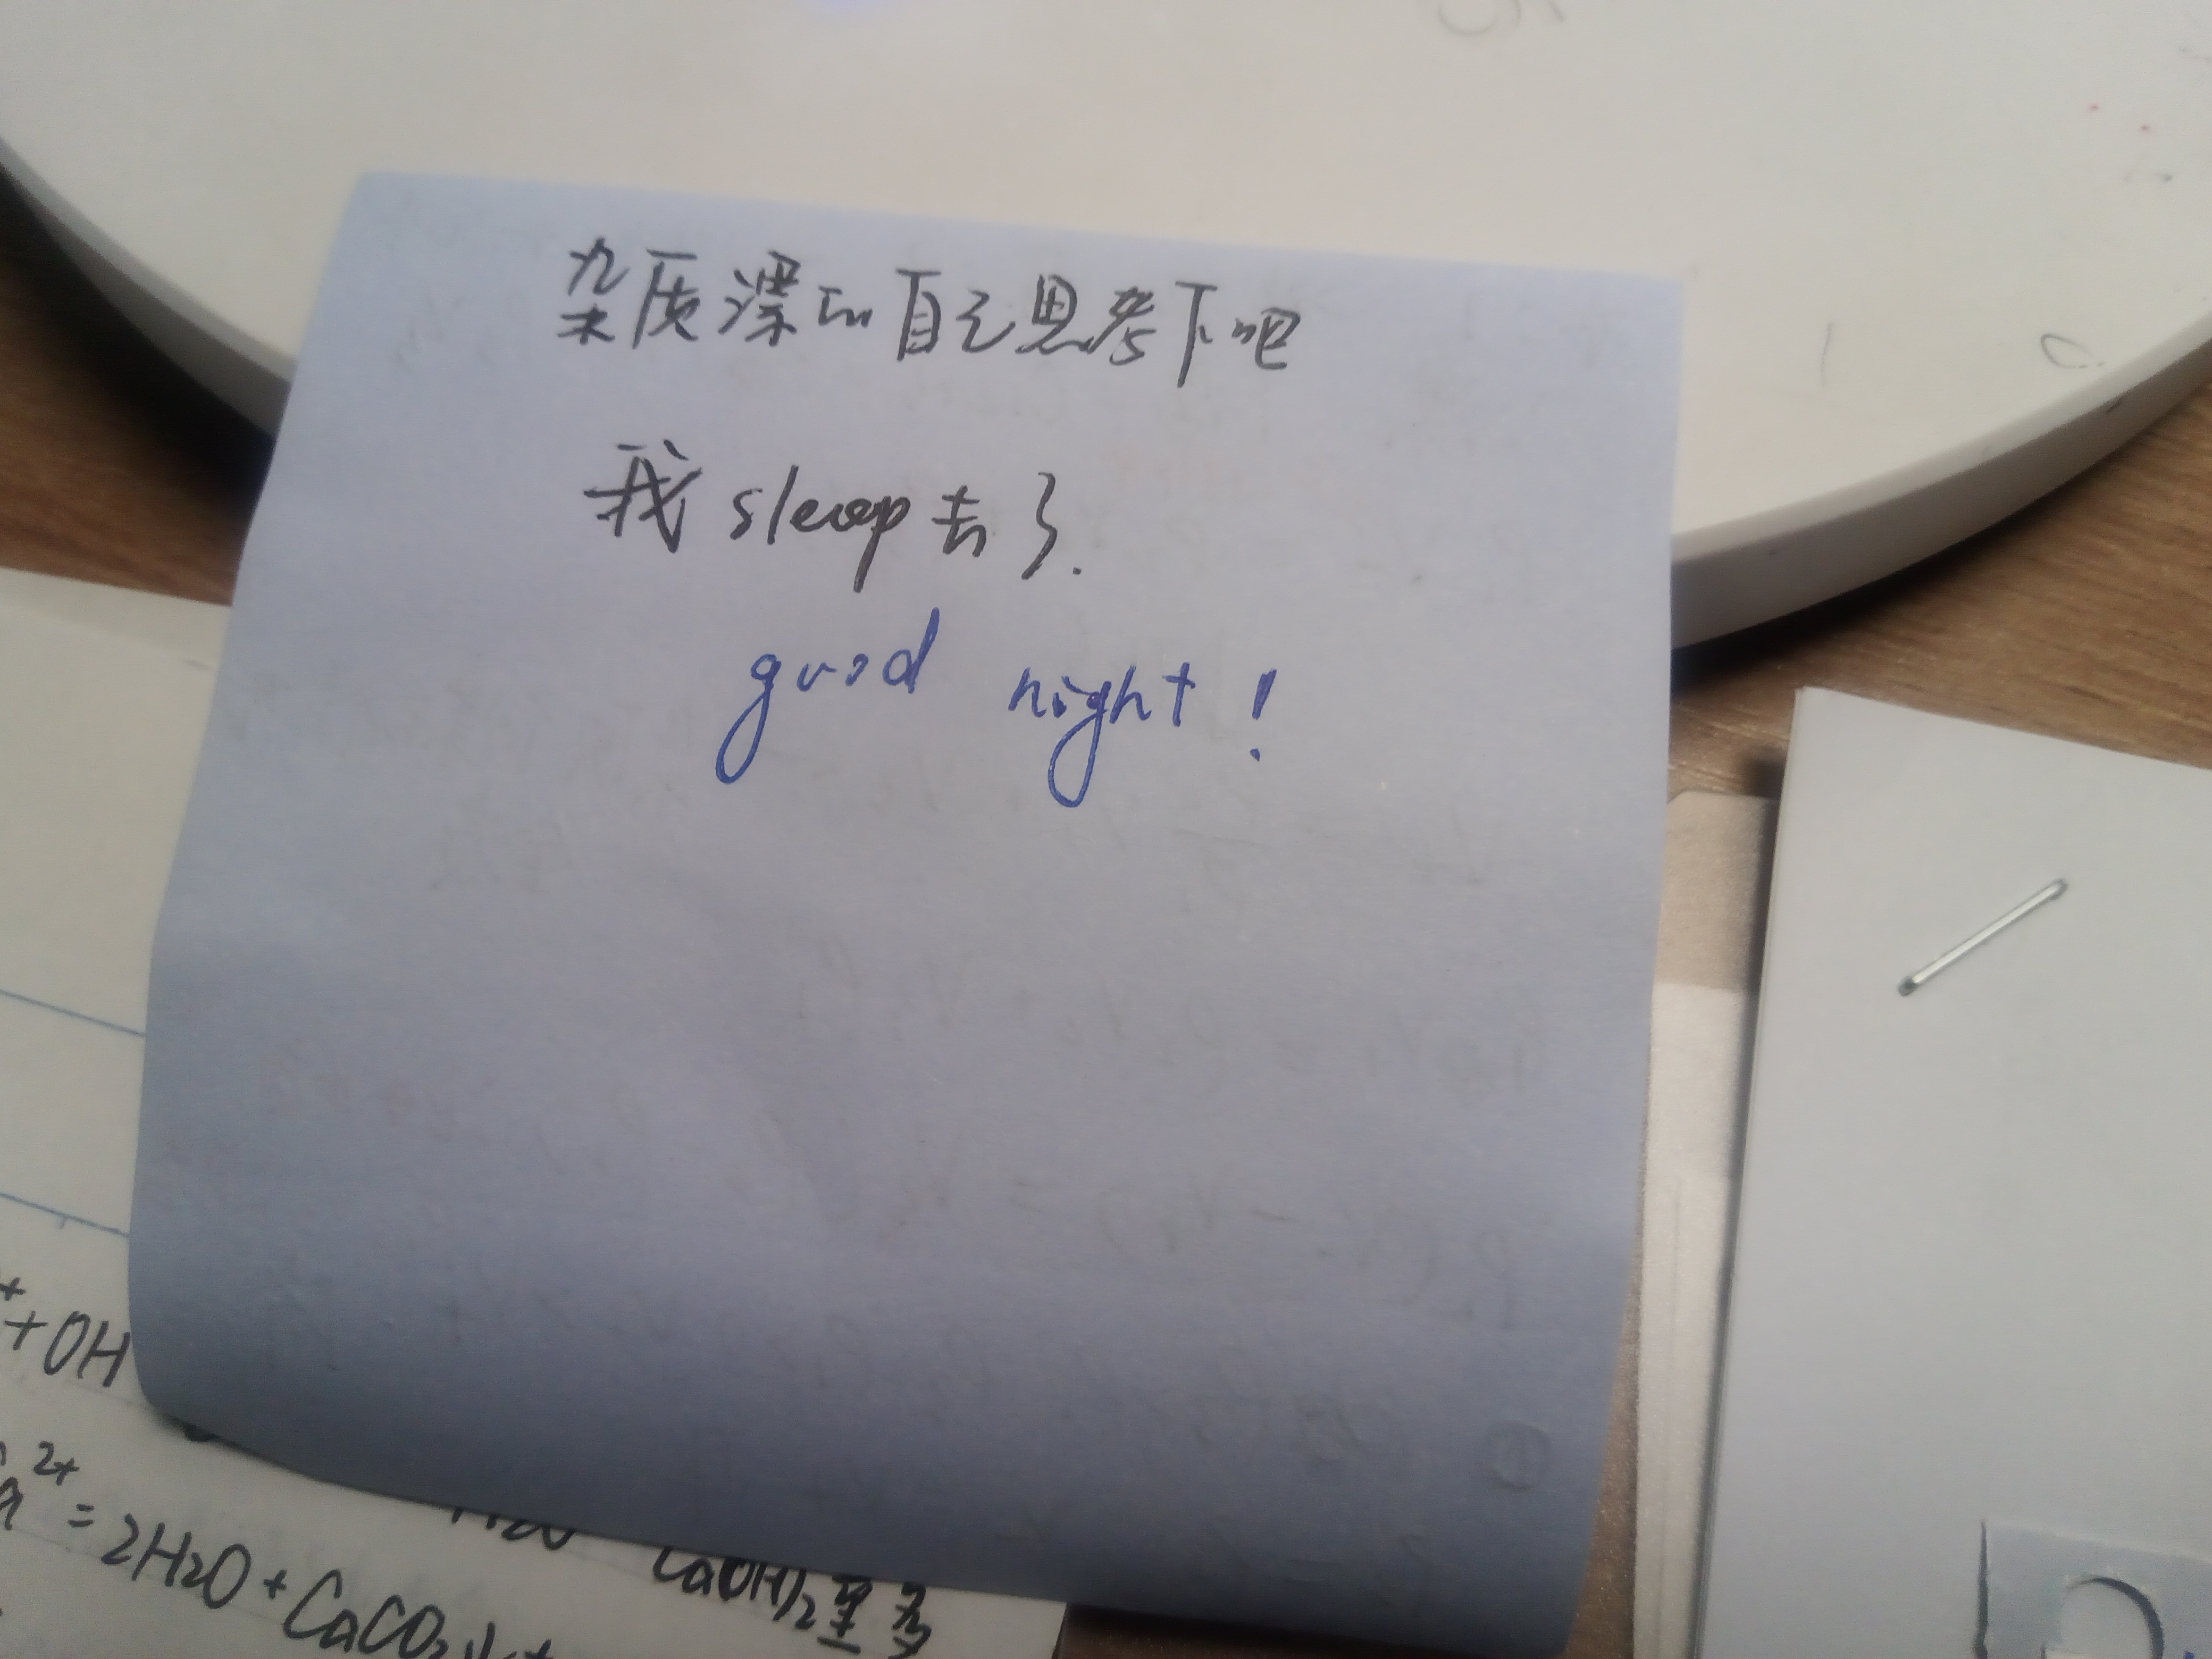 杂质深的自己思考下吧
我 sleep 去了.
good night!
+ + OH
2+ = 2H2O + CaCO3↓ +
H2O
Ca(OH)2 至多